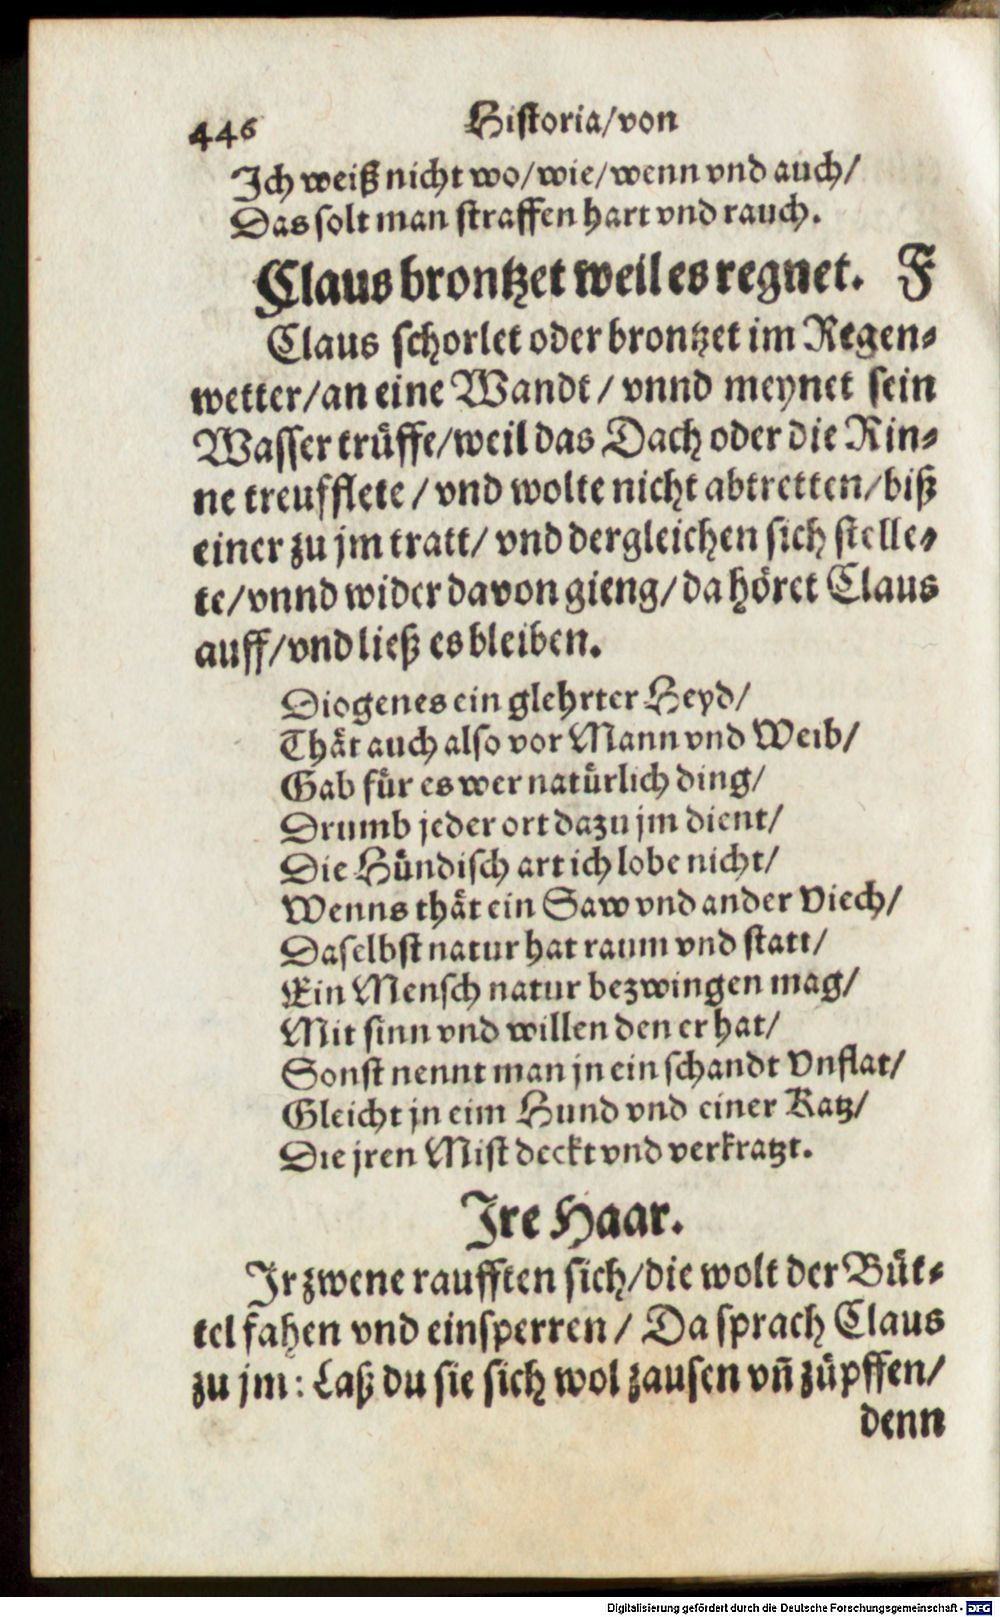 446 Historia/von
Ich weiß nicht wo/wie/wenn vnd auch/
Das solt man straffen hart vnd rauch.
Claus brontzet weil es regnet. F
Claus schorlet oder brontzet im Regen-
wetter/an eine Wandt/vnnd meynet sein
Wasser trüffe/weil das Dach oder die Rin-
ne treufflete/vnd wolte nicht abtretten/biß
einer zu jm tratt/vnd dergleichen sich stelle-
te/vnnd wider davon gieng/da höret Claus
auff/vnd ließ es bleiben.
Diogenes ein glehrter Heyd/
Thät auch also vor Mann vnd Weib/
Gab für es wer natürlich ding/
Drumb jeder ort dazu jm dient/
Die Hündisch art ich lobe nicht/
Wenns thät ein Saw vnd ander Viech/
Daselbst natur hat raum vnd statt/
Ein Mensch natur bezwingen mag/
Mit sinn vnd willen den er hat/
Sonst nennt man jn ein schandt Vnflat/
Gleicht jn eim Hund vnd einer Katz/
Die jren Mist deckt vnd verkratzt.
Ire Haar.
Ir zwene raufften sich/die wolt der Büt-
tel fahen vnd einsperren/Da sprach Claus
zu jm: Laß du sie sich wol zausen vñ züpffen/
denn
Digitalisierung gefördert durch die Deutsche Forschungsgemeinschaft - DFG